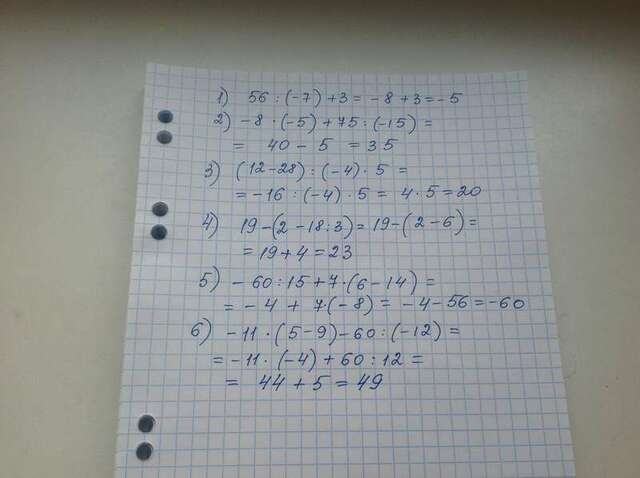 1) 56 : (-7) + 3 = -8 + 3 = -5
2) -8 · (-5) + 75 : (-15) =
= 40 - 5 = 35
3) (12 - 28) : (-4) · 5 =
= -16 : (-4) · 5 = 4 · 5 = 20
4) 19 - (2 - 18 : 3) = 19 - (2 - 6) =
= 19 + 4 = 23
5) - 60 : 15 + 7 · (6 - 14) =
= -4 + 7 · (-8) = -4 - 56 = -60
6) -11 · (5 - 9) - 60 : (-12) =
= -11 · (-4) + 60 : 12 =
= 44 + 5 = 49